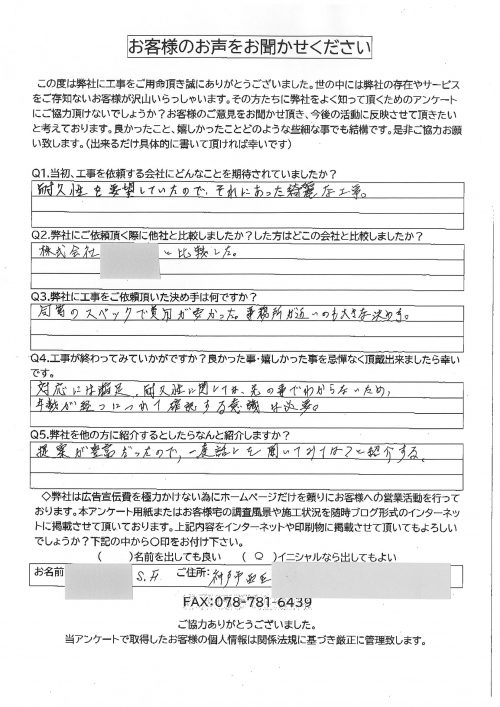 お客様のお声をお聞かせください
この度は弊社に工事をご用命頂き誠にありがとうございました。世の中には弊社の存在やサービス
をご存知ないお客様が沢山いらっしゃいます。その方たちに弊社をよく知って頂くためのアンケート
にご協力頂けないでしょうか？お客様のご意見をお聞かせ頂き、今後の活動に反映させて頂きたい
と考えております。良かったこと、嬉しかったことどのような些細な事でも結構です。是非ご協力お願
い致します。(出来るだけ具体的に書いて頂ければ幸いです)
Q1.当初、工事を依頼する会社にどんなことを期待されていましたか？
耐久性を要望していたので、それにあった綺麗な工事。
Q2.弊社にご依頼頂く際に他社と比較しましたか？した方はどこの会社と比較しましたか？
株式会社 と比較した。
Q3.弊社に工事をご依頼頂いた決め手は何ですか？
同等のスペックで費用が安かった。事務所が近いのも大きな決め手。
Q4.工事が終わってみていかがですか？良かった事・嬉しかった事を忌憚なく頂戴出来ましたら幸い
です。
対応には満足、耐久性に関しては、先の事でわからないため、
年数が経つにつれて確認する意識は必要。
Q5.弊社を他の方に紹介するとしたらなんと紹介しますか？
提案が豊富だったので、一度話しを聞いてみては？と紹介する。
◇弊社は広告宣伝費を極力かけない為にホームページだけを頼りにお客様への営業活動を行って
おります。本アンケート用紙またはお客様宅の調査風景や施工状況を随時ブログ形式のインターネッ
トに掲載させて頂いております。上記内容をインターネットや印刷物に掲載させて頂いてもよろしい
でしょうか？下記の中から〇印をお付け下さい。
( )名前を出しても良い (○)イニシャルなら出してもよい
お名前 S.H ご住所: 神戸市西区
FAX:078-781-6439
ご協力ありがとうございました。
当アンケートで取得したお客様の個人情報は関係法規に基づき厳正に管理致します。